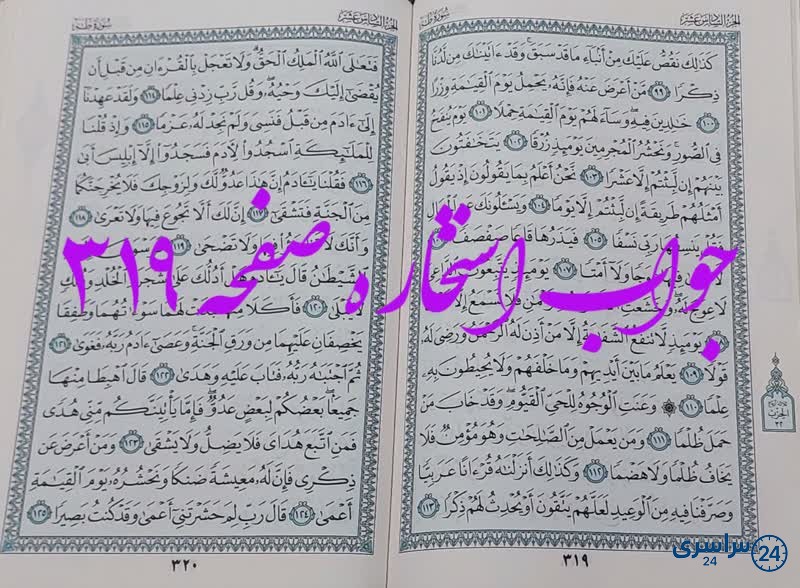 الجزء السادس عشر
سورة طه
كَذَٰلِكَ نَقُصُّ عَلَيْكَ مِنْ أَنْبَاءِ مَا قَدْ سَبَقَ وَقَدْ ءَاتَيْنَاكَ مِن لَّدُنَّا
ذِكْرًا ٩٩ مَّنْ أَعْرَضَ عَنْهُ فَإِنَّهُ يَحْمِلُ يَوْمَ الْقِيَامَةِ وِزْرًا
١٠٠ خَالِدِينَ فِيهِ وَسَاءَ لَهُمْ يَوْمَ الْقِيَامَةِ حِمْلًا ١٠١ يَوْمَ يُنفَخُ
فِي الصُّورِ وَنَحْشُرُ الْمُجْرِمِينَ يَوْمَئِذٍ زُرْقًا ١٠٢ يَتَخَافَتُونَ
بَيْنَهُمْ إِن لَّبِثْتُمْ إِلَّا عَشْرًا ١٠٣ نَّحْنُ أَعْلَمُ بِمَا يَقُولُونَ إِذْ يَقُولُ
أَمْثَلُهُمْ طَرِيقَةً إِن لَّبِثْتُمْ إِلَّا يَوْمًا ١٠٤ وَيَسْأَلُونَكَ عَنِ الْجِبَالِ
فَقُلْ يَنسِفُهَا رَبِّي نَسْفًا ١٠٥ فَيَذَرُهَا قَاعًا صَفْصَفًا
عِوَجًا وَلَا أَمْتًا ١٠٧ يَوْمَئِذٍ يَتَّبِعُونَ
لَا عِوَجَ لَهُ وَخَشَعَتِ فَلَا تَسْمَعُ إِلَّا
يَوْمَئِذٍ لَّا تَنفَعُ الشَّفَاعَةُ إِلَّا مَنْ أَذِنَ لَهُ الرَّحْمَٰنُ وَرَضِيَ لَهُ
قَوْلًا ١٠٩ يَعْلَمُ مَا بَيْنَ أَيْدِيهِمْ وَمَا خَلْفَهُمْ وَلَا يُحِيطُونَ بِهِ
عِلْمًا ١١٠ وَعَنَتِ الْوُجُوهُ لِلْحَيِّ الْقَيُّومِ وَقَدْ خَابَ مَنْ
حَمَلَ ظُلْمًا ١١١ وَمَن يَعْمَلْ مِنَ الصَّالِحَاتِ وَهُوَ مُؤْمِنٌ فَلَا
يَخَافُ ظُلْمًا وَلَا هَضْمًا ١١٢ وَكَذَٰلِكَ أَنزَلْنَاهُ قُرْءَانًا عَرَبِيًّا
وَصَرَّفْنَا فِيهِ مِنَ الْوَعِيدِ لَعَلَّهُمْ يَتَّقُونَ أَوْ يُحْدِثُ لَهُمْ ذِكْرًا ١١٣
٣١٩
سورة طه
الجزء السادس عشر
فَتَعَالَى اللَّهُ الْمَلِكُ الْحَقُّ وَلَا تَعْجَلْ بِالْقُرْءَانِ مِن قَبْلِ أَن
يُقْضَىٰ إِلَيْكَ وَحْيُهُ وَقُل رَّبِّ زِدْنِي عِلْمًا ١١٤ وَلَقَدْ عَهِدْنَا
إِلَىٰ ءَادَمَ مِن قَبْلُ فَنَسِيَ وَلَمْ نَجِدْ لَهُ عَزْمًا ١١٥ وَإِذْ قُلْنَا
لِلْمَلَائِكَةِ اسْجُدُوا لِءَادَمَ فَسَجَدُوا إِلَّا إِبْلِيسَ أَبَىٰ
١١٦ فَقُلْنَا يَا ءَادَمُ إِنَّ هَٰذَا عَدُوٌّ لَّكَ وَلِزَوْجِكَ فَلَا يُخْرِجَنَّكُمَا
مِنَ الْجَنَّةِ فَتَشْقَىٰ ١١٧ إِنَّ لَكَ أَلَّا تَجُوعَ فِيهَا وَلَا تَعْرَىٰ ١١٨
وَأَنَّكَ لَا وَلَا تَضْحَىٰ ١١٩
الشَّيْطَانُ قَالَ يَا ءَادَمُ هَلْ أَدُلُّكَ عَلَىٰ شَجَرَةِ الْخُلْدِ وَمُلْكٍ
لَّا يَبْلَىٰ ١٢٠ فَأَكَلَا مِنْهَا فَبَدَتْ لَهُمَا سَوْءَاتُهُمَا وَطَفِقَا
يَخْصِفَانِ عَلَيْهِمَا مِن وَرَقِ الْجَنَّةِ وَعَصَىٰ ءَادَمُ رَبَّهُ فَغَوَىٰ ١٢١
ثُمَّ اجْتَبَاهُ رَبُّهُ فَتَابَ عَلَيْهِ وَهَدَىٰ ١٢٢ قَالَ اهْبِطَا مِنْهَا
جَمِيعًا بَعْضُكُمْ لِبَعْضٍ عَدُوٌّ فَإِمَّا يَأْتِيَنَّكُم مِّنِّي هُدًى
فَمَنِ اتَّبَعَ هُدَايَ فَلَا يَضِلُّ وَلَا يَشْقَىٰ ١٢٣ وَمَنْ أَعْرَضَ عَن
ذِكْرِي فَإِنَّ لَهُ مَعِيشَةً ضَنكًا وَنَحْشُرُهُ يَوْمَ الْقِيَامَةِ
أَعْمَىٰ ١٢٤ قَالَ رَبِّ لِمَ حَشَرْتَنِي أَعْمَىٰ وَقَدْ كُنتُ بَصِيرًا ١٢٥
٣٢٠
جواب استخاره صفحه ۳۱۹
سراسری 24
24